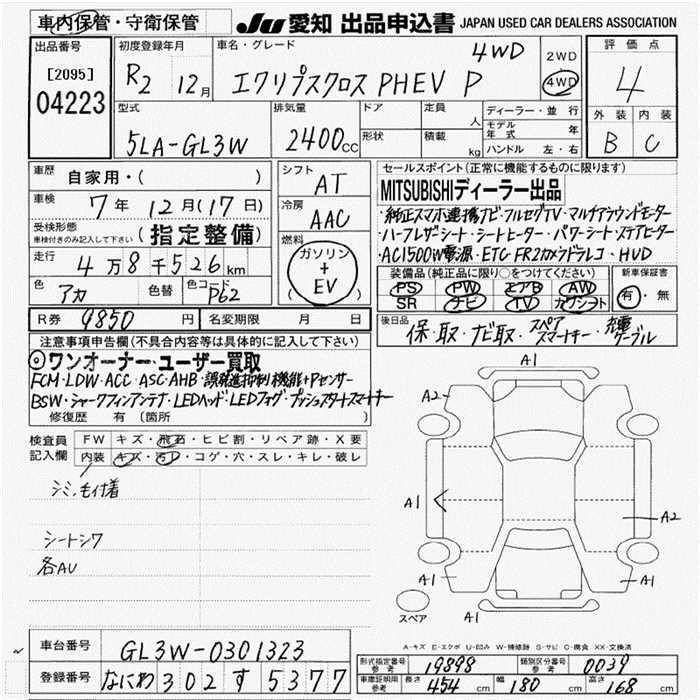 車内保管・守衛保管 JU 愛知 出品申込書 JAPAN USED CAR DEALERS ASSOCIATION
出品番号 [2095] 04223
初度登録年月 R2 12月
車名・グレード 4WD
エクリプスクロス PHEV P
2WD
4WD
評価点 4
外装 内装
B C
型式 5LA-GL3W
排気量 2400cc
ドア 定員 人
形状 積載 kg
ディーラー・並行
モデル年式 年
ハンドル 左・右
車歴 自家用・( )
車検 7年 12月(17日)
受検形態 車検付きのみ記入して下さい (指定整備)
走行 4万8千526km
色 アカ 色替 色コード P62
シフト AT
冷房 AAC
燃料 ガソリン+EV
R券 9850円 名変期限 月 日
セールスポイント(正常に機能するものに限ります)
MITSUBISHIディーラー出品
・純正スマホ連携ナビ・フルセグTV・マルチアラウンドモニター
・ハーフレザーシート・シートヒーター・パワーシート・ステアヒーター
・AC1500W電源・ETC・FR2カメラドラレコ・HUD
装備品(純正品に限り○をつけてください)
PS PW エアB AW
SR ナビ TV カワシート
新車保証書
有・無
後日品 保・取・ナビ取・スペアスマートキー・充電ケーブル
注意事項申告欄(不具合内容等は具体的に記入して下さい)
◎ワンオーナー・ユーザー買取
FCM・LDW・ACC・ASC・AHB・誤発進抑制機能+Pセンサー
BSW・シャークフィンアンテナ・LEDヘッド・LEDフォグ・プッシュスタートスマートキー
修復歴 有(箇所 )
検査員記入欄
FW キズ・飛石・ヒビ割・リペア跡・X要
内装 キズ・汚レ・コゲ・穴・スレ・キレ・破レ
シミ、毛付着
シートシワ
各AU
A1
A2
A1
A2
A1
A1
A1
スペア
A-キズ E-エクボ U-凹み W-補修跡 S-サビ C-腐食 XX-交換済
車台番号 GL3W-0301323
登録番号 なにわ 302 す 5377
形式指定番号 参考 19898 類別区分番号 参考 0039
車庫証明用 参考 長さ 454cm 幅 180cm 高さ 168cm